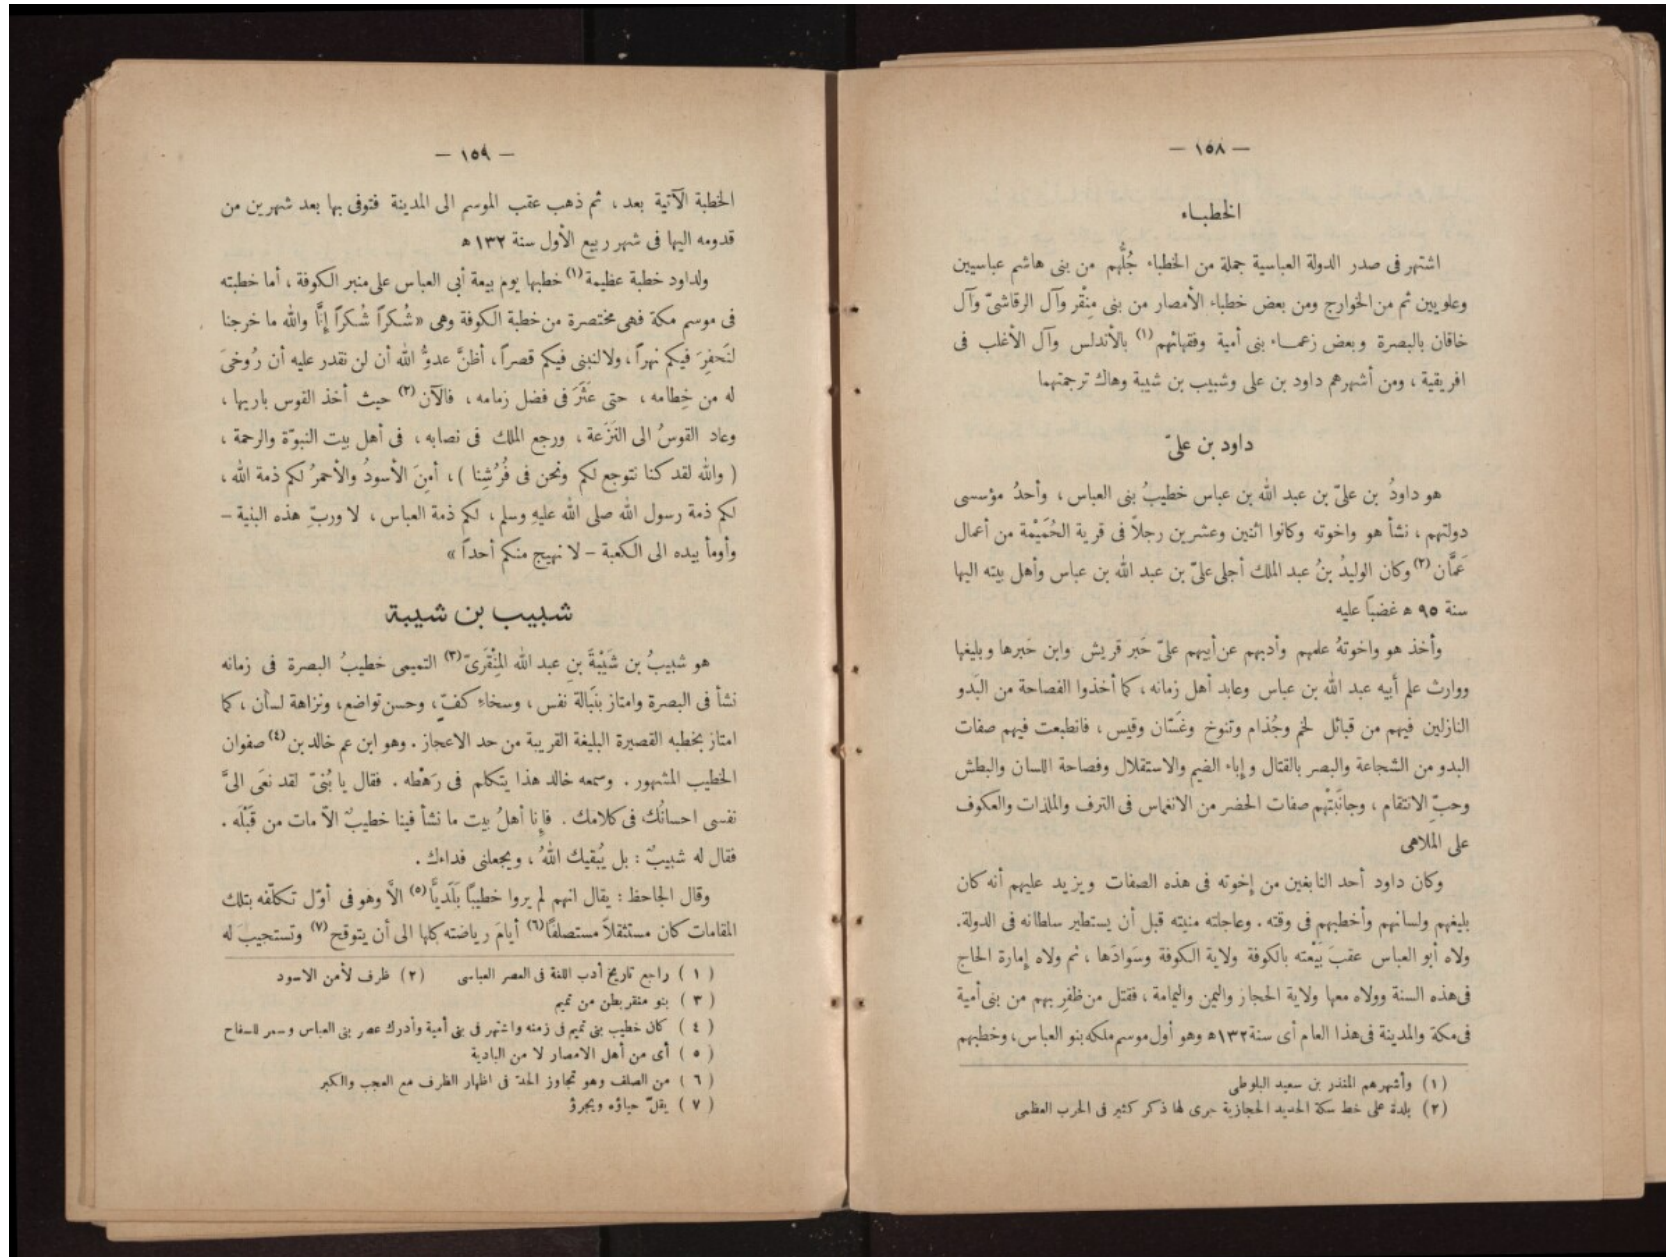 — ١٥٨ —
الخطباء
اشتهر فى صدر الدولة العباسية جملة من الخطباء جُلُّهم من بنى هاشم عباسيين
وعلويين ثم من الخوارج ومن بعض خطباء الأمصار من بنى مِنْقر وآل الرقاشىّ وآل
خاقان بالبصرة وبعض زعمـاء بنى أمية وفقهائهم (١) بالأندلس وآل الأغلب فى
افريقية ، ومن أشهرهم داود بن على وشبيب بن شيبة وهاك ترجمتهما
داود بن علىّ
هو داودُ بن علىّ بن عبد الله بن عباس خطيبُ بنى العباس ، وأحدُ مؤسسى
دولتهم ، نشأ هو واخوته وكانوا اثنين وعشرين رجلاً فى قرية الحُمَيْمة من أعمال
عَمَّان (٢) وكان الوليدُ بنُ عبد الملك أجلى علىّ بن عبد الله بن عباس وأهل بيته اليها
سنة ٩٥ ه غضباً عليه
وأخذ هو واخوتهُ علمهم وأدبهم عن أبيهم علىّ حَبر قريش وابن حَبرها وبليغها
ووارث علم أبيه عبد الله بن عباس وعابد أهل زمانه ، كما أخذوا الفصاحة من البَدو
النازلين فيهم من قبائل لخم وجُذام وتنوخ وغَسَّان وقيس ، فانطبعت فيهم صفات
البدو من الشجاعة والبصر بالقتال وإباء الضيم والاستقلال وفصاحة اللسان والبطش
وحبّ الانتقام ، وجانَبَتْهم صفات الحضر من الانغماس فى الترف والملذات والعكوف
على الملاهى
وكان داود أحد النابغين من إخوته فى هذه الصفات ويزيد عليهم أنه كان
بليغهم ولسانهم وأخطبهم فى وقته . وعاجلته منيته قبل أن يستطير سلطانه فى الدولة.
ولاه أبو العباس عقبَ بَيْعته بالكوفة ولاية الكوفة وسَوادَها ، ثم ولاه إمارة الحاج
فى هذه السنة وولاه معها ولاية الحجاز واليمن واليمامة ، فقتل من ظفِر بهم من بنى أمية
فى مكة والمدينة فى هذا العام أى سنة ١٣٢ ه وهو أول موسم ملكه بنو العباس ، وخطبهم
(١) وأشهرهم المنذر بن سعيد البلوطى
(٢) بلدة على خط سكة الحديد الحجازية جرى لها ذكر كثير فى الحرب العظمى
— ١٥٩ —
الخطبة الآتية بعد ، ثم ذهب عقب الموسم الى المدينة فتوفى بها بعد شهرين من
قدومه اليها فى شهر ربيع الأول سنة ١٣٢ ه
ولداود خطبة عظيمة (١) خطبها يوم بيعة أبى العباس على منبر الكوفة ، أما خطبته
فى موسم مكة فهى مختصرة من خطبة الكوفة وهى «شُكراً شُكراً إنَّا والله ما خرجنا
لنَحفِرَ فيكم نهراً ، ولا لنبنى فيكم قصراً ، أظنَّ عدوُّ الله أن لن نقدر عليه أن رُوخىَ
له من خِطامه ، حتى عَثَرَ فى فضل زمامه ، فالآن (٢) حيث أخذ القوس باريها ،
وعاد القوسُ الى النَزَعة ، ورجع الملك فى نصابه ، فى أهل بيت النبوّة والرحمة ،
( والله لقد كنا نتوجع لكم ونحن فى فُرُشِنا ) ، أمِنَ الأسودُ والأحمرُ لكم ذمة الله ،
لكم ذمة رسول الله صلى الله عليهِ وسلم ، لكم ذمة العباس ، لا وربِّ هذه البنية –
وأومأ بيده الى الكعبة – لا نهيج منكم أحداً »
شبيب بن شيبة
هو شبيبُ بن شَيْبةَ بنِ عبد الله المِنْقَرىّ (٣) التميمى خطيبُ البصرة فى زمانه
نشأ فى البصرة وامتاز بنَبالة نفس ، وسخاءِ كفّ ٍ، وحسن تواضع، ونزاهة لسان ، كما
امتاز بخطبه القصيرة البليغة القريبة من حد الاعجاز . وهو ابن عم خالد بن (٤) صفوان
الخطيب المشهور . وسمعه خالد هذا يتكلم فى رَهْطه . فقال يا بُنىّ لقد نعَى الىَّ
نفسى احسانُك فى كلامك . فإنا أهلُ بيت ما نشأ فينا خطيبٌ الاّ مات من قَبْلَه .
فقال له شبيبٌ : بل يُبقيك اللهُ ، ويجعلنى فداءك .
وقال الجاحظ : يقال انهم لم يروا خطيبًا بَلَديًّا (٥) الاَّ وهو فى أوّل تكلّفه بتلك
المقامات كان مستثقلاً مستصلفًا (٦) أيامَ رياضته كلها الى أن يتوقح (٧) وتستجيبَ له
( ١ ) راجع تاريخ أدب اللغة فى العصر العباسى ( ٢ ) ظرف لأمن الاسود
( ٣ ) بنو منقر بطن من تميم
( ٤ ) كان خطيب بنى تميم فى زمنه واشتهر فى بنى أمية وأدرك عصر بنى العباس وسمر للسفاح
( ٥ ) أى من أهل الامصار لا من البادية
( ٦ ) من الصلف وهو تجاوز الحد فى اظهار الظرف مع العجب والكبر
( ٧ ) يقلّ حياؤه ويجرؤ